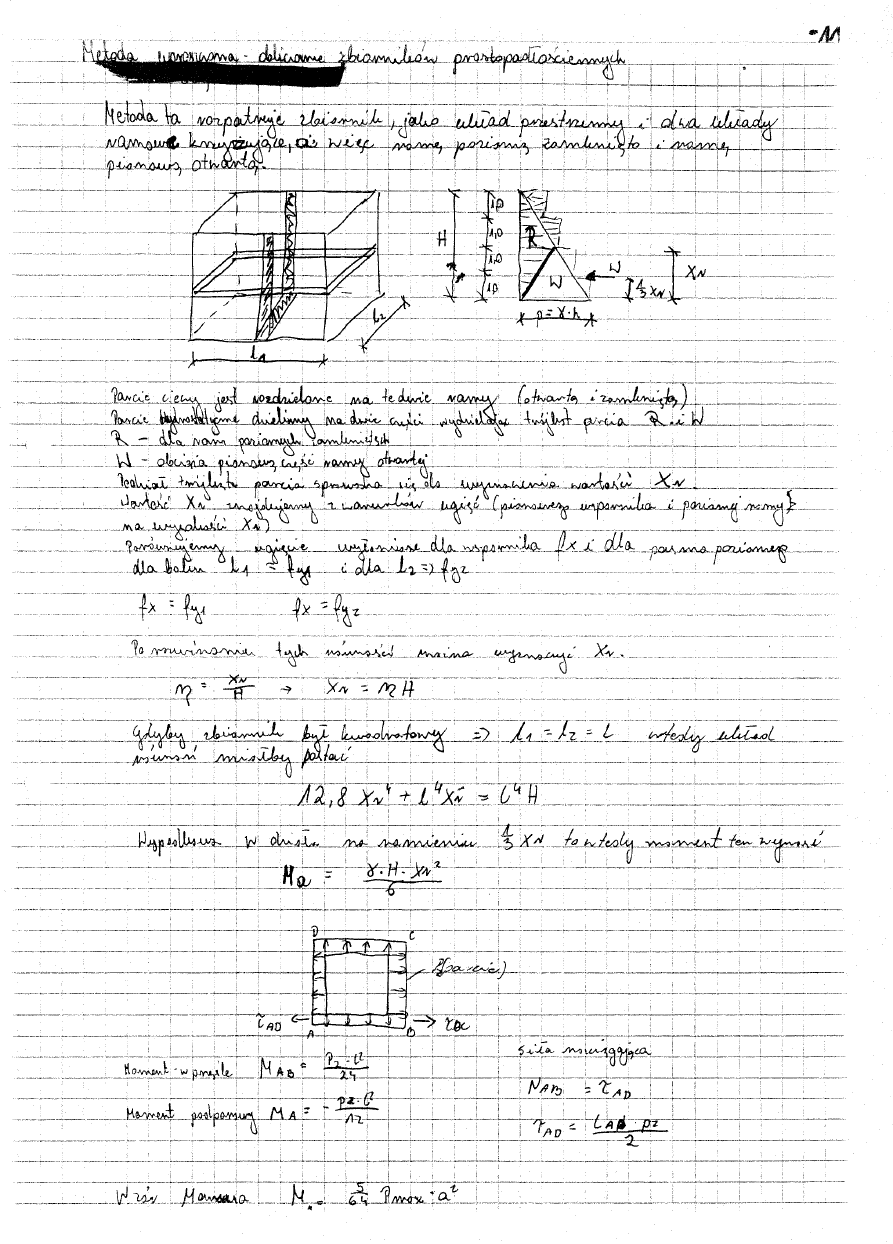 -11
Metoda - obliczanie zbiorników prostopadłościennych
Metoda ta rozpatruje zbiornik, jako układ przestrzenny i dwa układy
ramowe krzyżujące, a więc ramę poziomą zamkniętą i ramę
pionową otwartą.
H
1,0
1,0
1,0
1,0
R
W
W
1/3 XN
XN
p = γ·h
L1
L2
Parcie cieczy jest rozdzielone na te dwie ramy (otwartą i zamkniętą)
Parcie hydrostatyczne dzielimy na dwie części wydzielając trójkąt parcia R i W
R - dla ram poziomych zamkniętych
W - obciąża pionową część ramy otwartej
Podział trójkąta parcia sprowadza się do wyznaczenia wartości XN.
Wartość XN znajdujemy z warunków ugięć (pionowego wspornika i poziomej ramy
na wysokości XN)
Porównujemy ugięcie dla wspornika fx i dla pasma poziomego
dla boków L1 = fy1 i dla L2 => fy2
fx = fy1 fx = fy2
Po rozwiązaniu tych równości można wyznaczyć XN.
η = XN/H → XN = ηH
Gdyby zbiornik był kwadratowy => L1 = L2 = L wtedy układ
równań miałby postać
12,8 XN⁴ + L⁴XN = L⁴H
Wypadkowa W działa na ramieniu 1/3 XN to wtedy moment ten wynosi
Ma = γ·H·XN²/6
D C
P(parcie)
τAD
A B
Moment w przęśle MAB = Pz·L²/24
Moment podporowy MA = - pz·L²/12
siła rozciągająca
NAB = τAD
τAD = LAB·pz/2
Wzór M = 5/64 Pmax·a²